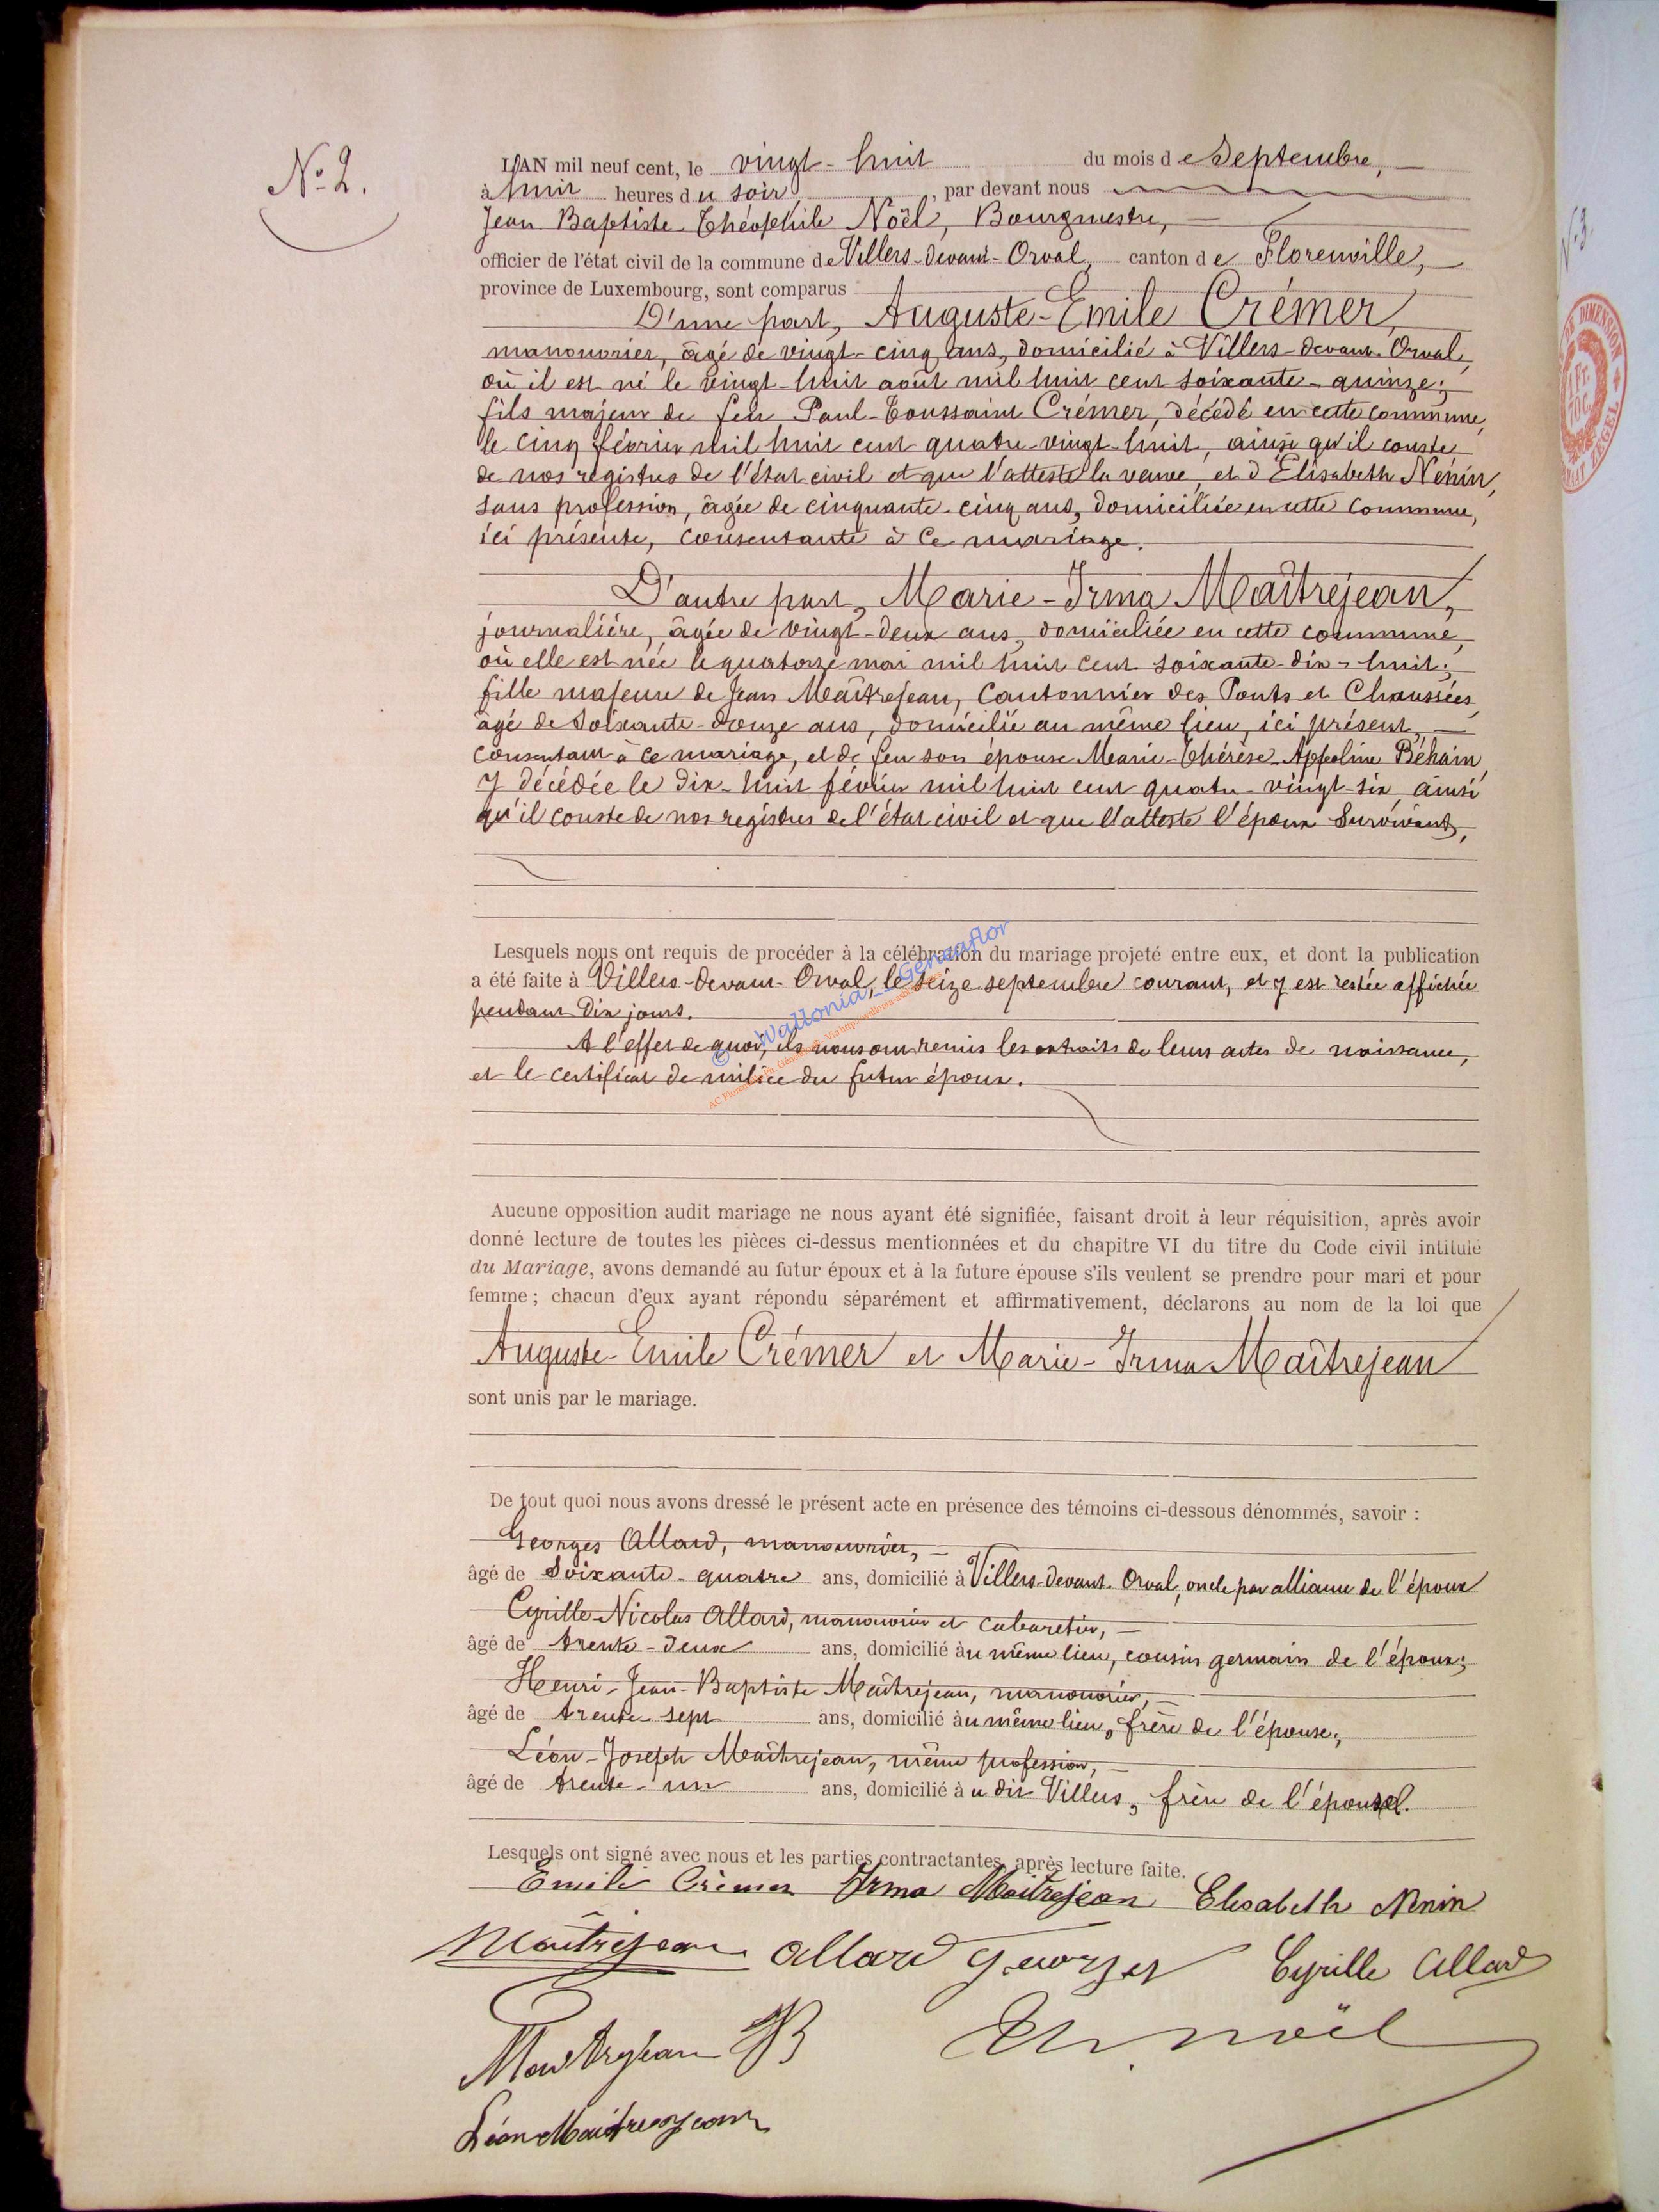 N° 2.
L'AN mil neuf cent, le vingt-huit du mois de Septembre,
à huit heures du soir, par devant nous
Jean Baptiste Théophile Noël, Bourgmestre,
officier de l'état civil de la commune de Villers-devant-Orval, canton de Florenville,
province de Luxembourg, sont comparus
D'une part, Auguste-Emile Crémer,
manouvrier, âgé de vingt-cinq ans, domicilié à Villers-devant-Orval,
où il est né le vingt-huit août mil huit cent soixante-quinze;
fils majeur de feu Paul-Toussaint Crémer, décédé en cette commune,
le cinq février mil huit cent quatre-vingt-huit, ainsi qu'il conste
de nos registres de l'état civil et que l'atteste la veuve, et d'Elisabeth Nénin,
sans profession, âgée de cinquante-cinq ans, domiciliée en cette commune,
ici présente, consentante à ce mariage.
D'autre part, Marie-Irma Maîtrejean,
journalière, âgée de vingt-deux ans, domiciliée en cette commune,
où elle est née le quatorze mai mil huit cent soixante-dix-huit;
fille majeure de Jean Maîtrejean, Cantonnier des Ponts et Chaussées,
âgé de soixante-douze ans, domicilié au même lieu, ici présent,
consentant à ce mariage, et de feu son épouse Marie-Thérèse-Appoline Béhain,
y décédée le dix-huit février mil huit cent quatre-vingt-six ainsi
qu'il conste de nos registres de l'état civil et que l'atteste l'époux survivant,
Lesquels nous ont requis de procéder à la célébration du mariage projeté entre eux, et dont la publication
a été faite à Villers-devant-Orval, le seize septembre courant, et y est restée affichée
pendant dix jours.
A l'effet de quoi, ils nous ont remis les extraits de leurs actes de naissance,
et le certificat de milice du futur époux.
© Wallonia - Geneaflor
Aucune opposition audit mariage ne nous ayant été signifiée, faisant droit à leur réquisition, après avoir
donné lecture de toutes les pièces ci-dessus mentionnées et du chapitre VI du titre du Code civil intitulé
du Mariage, avons demandé au futur époux et à la future épouse s'ils veulent se prendre pour mari et pour
femme; chacun d'eux ayant répondu séparément et affirmativement, déclarons au nom de la loi que
Auguste-Emile Crémer et Marie-Irma Maîtrejean
sont unis par le mariage.
De tout quoi nous avons dressé le présent acte en présence des témoins ci-dessous dénommés, savoir :
Georges Allard, manouvrier,
âgé de soixante-quatre ans, domicilié à Villers-devant-Orval, oncle par alliance de l'époux
Cyrille-Nicolas Allard, manouvrier et cabaretier,
âgé de trente-deux ans, domicilié au même lieu, cousin germain de l'époux;
Henri-Jean-Baptiste Maîtrejean, manouvrier,
âgé de trente-sept ans, domicilié au même lieu, frère de l'épouse;
Léon-Joseph Maîtrejean, même profession,
âgé de trente-un ans, domicilié au dit Villers, frère de l'épouse.
Lesquels ont signé avec nous et les parties contractantes, après lecture faite.
Emile Crémer Irma Maitrejean Elisabeth Nenin
Maîtrejean Allard Georges Cyrille Allard
Maitrejean JB Th. Noël
Léon Maitrejean
N° 3
DE DIMENSION